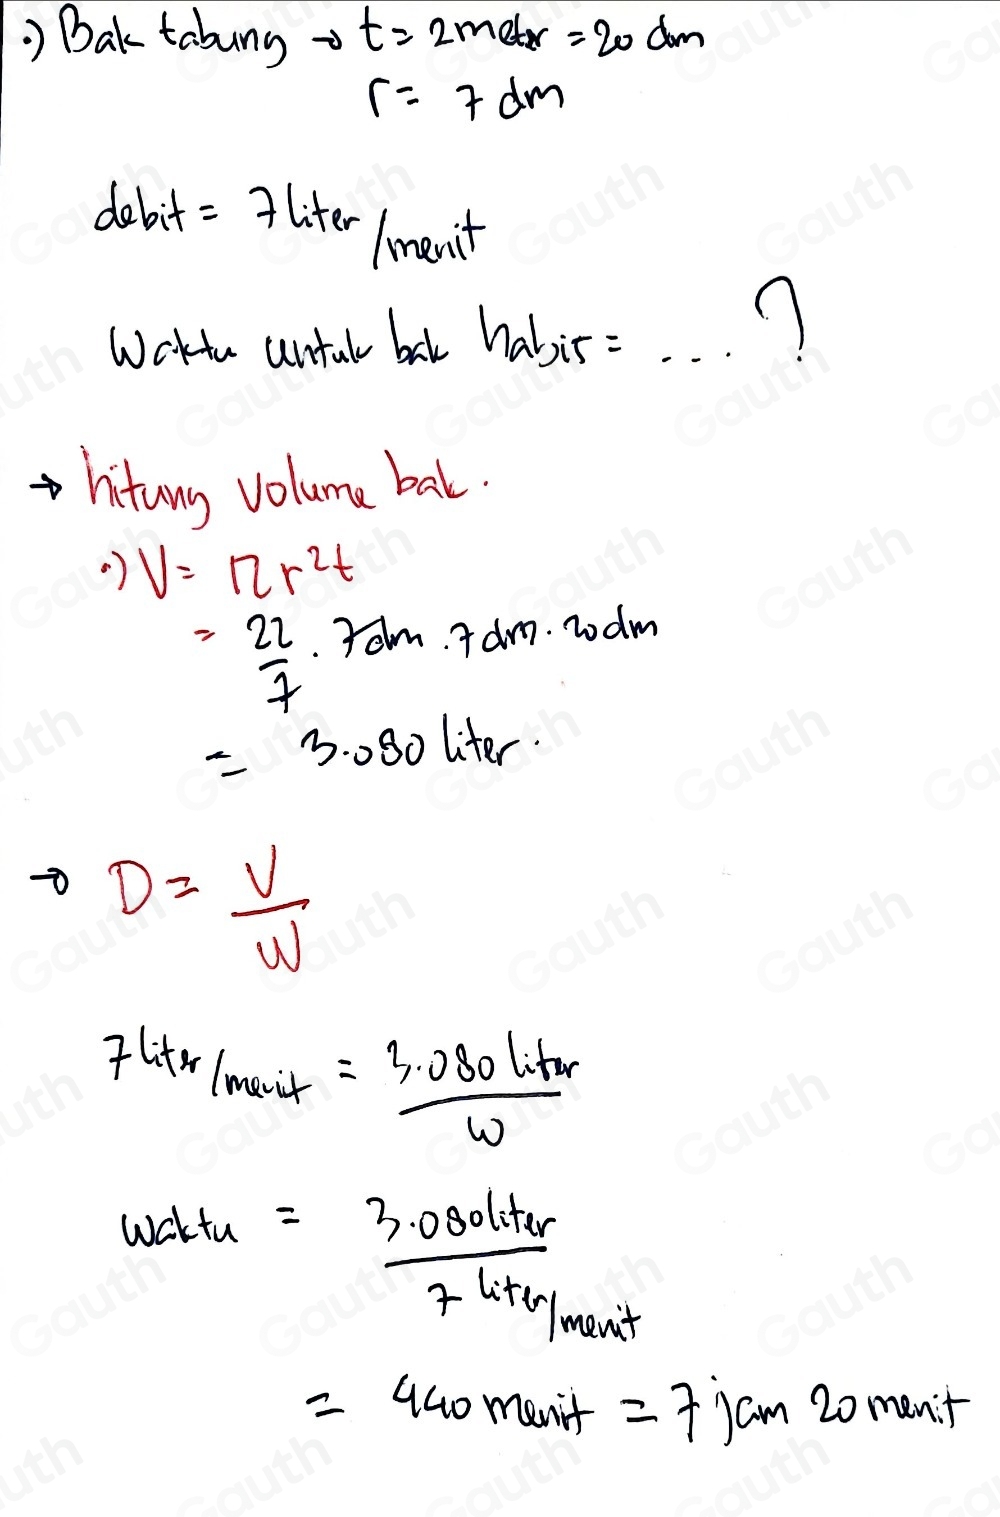 ·) Bak tabung → t = 2 meter = 20 dm
r = 7 dm
debit = 7 liter/menit
Waktu untuk bak habis = .... ?
→ hitung volume bak.
·) V = π r²t
= 22/7 . 7dm . 7 dm . 20 dm
= 3.080 liter.
→ D = V/W
7 liter/menit = 3.080 liter/W
waktu = 3.080 liter/7 liter/menit
= 440 menit = 7 jam 20 menit